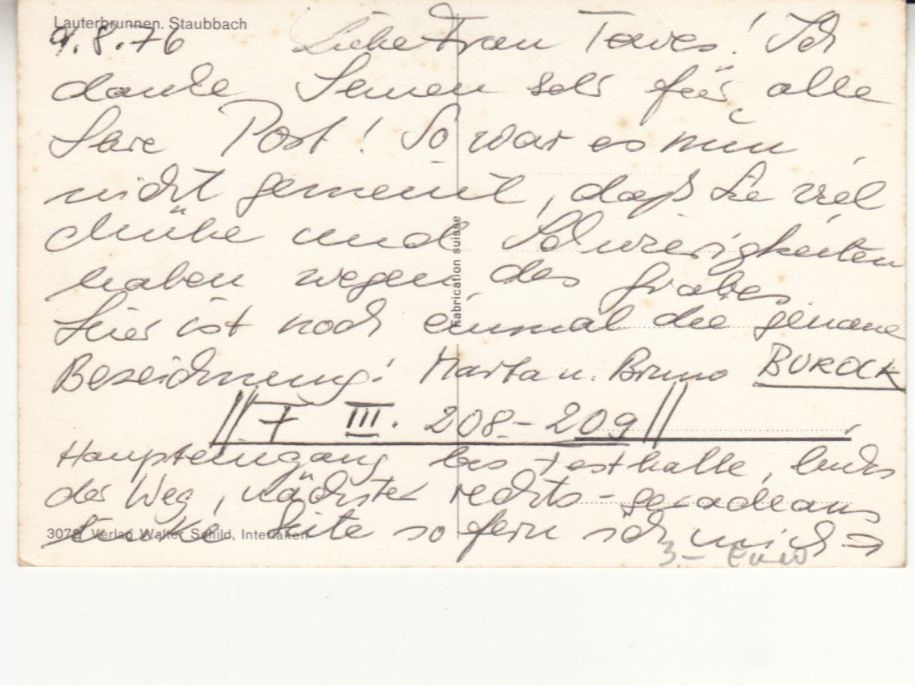 Lauterbrunnen. Staubbach
9.8.76 Liebe Frau Tewes! Ich
danke Ihnen sehr für alle
Ihre Post! So war es nun
nicht gemeint, daß Sie viel
Mühe und Schwierigkeiten
haben wegen des Grabes.
Hier ist noch einmal die genaue
Bezeichnung: Marta u. Bruno BUROCK
F III. 208-209
Haupteingang bis Festhalle, links
der Weg, nächster rechts - geradeaus
linke Seite so fern ich mich ⇒
3078 Verlag Walter Schild, Interlaken
3.- Euro
Fabrication suisse